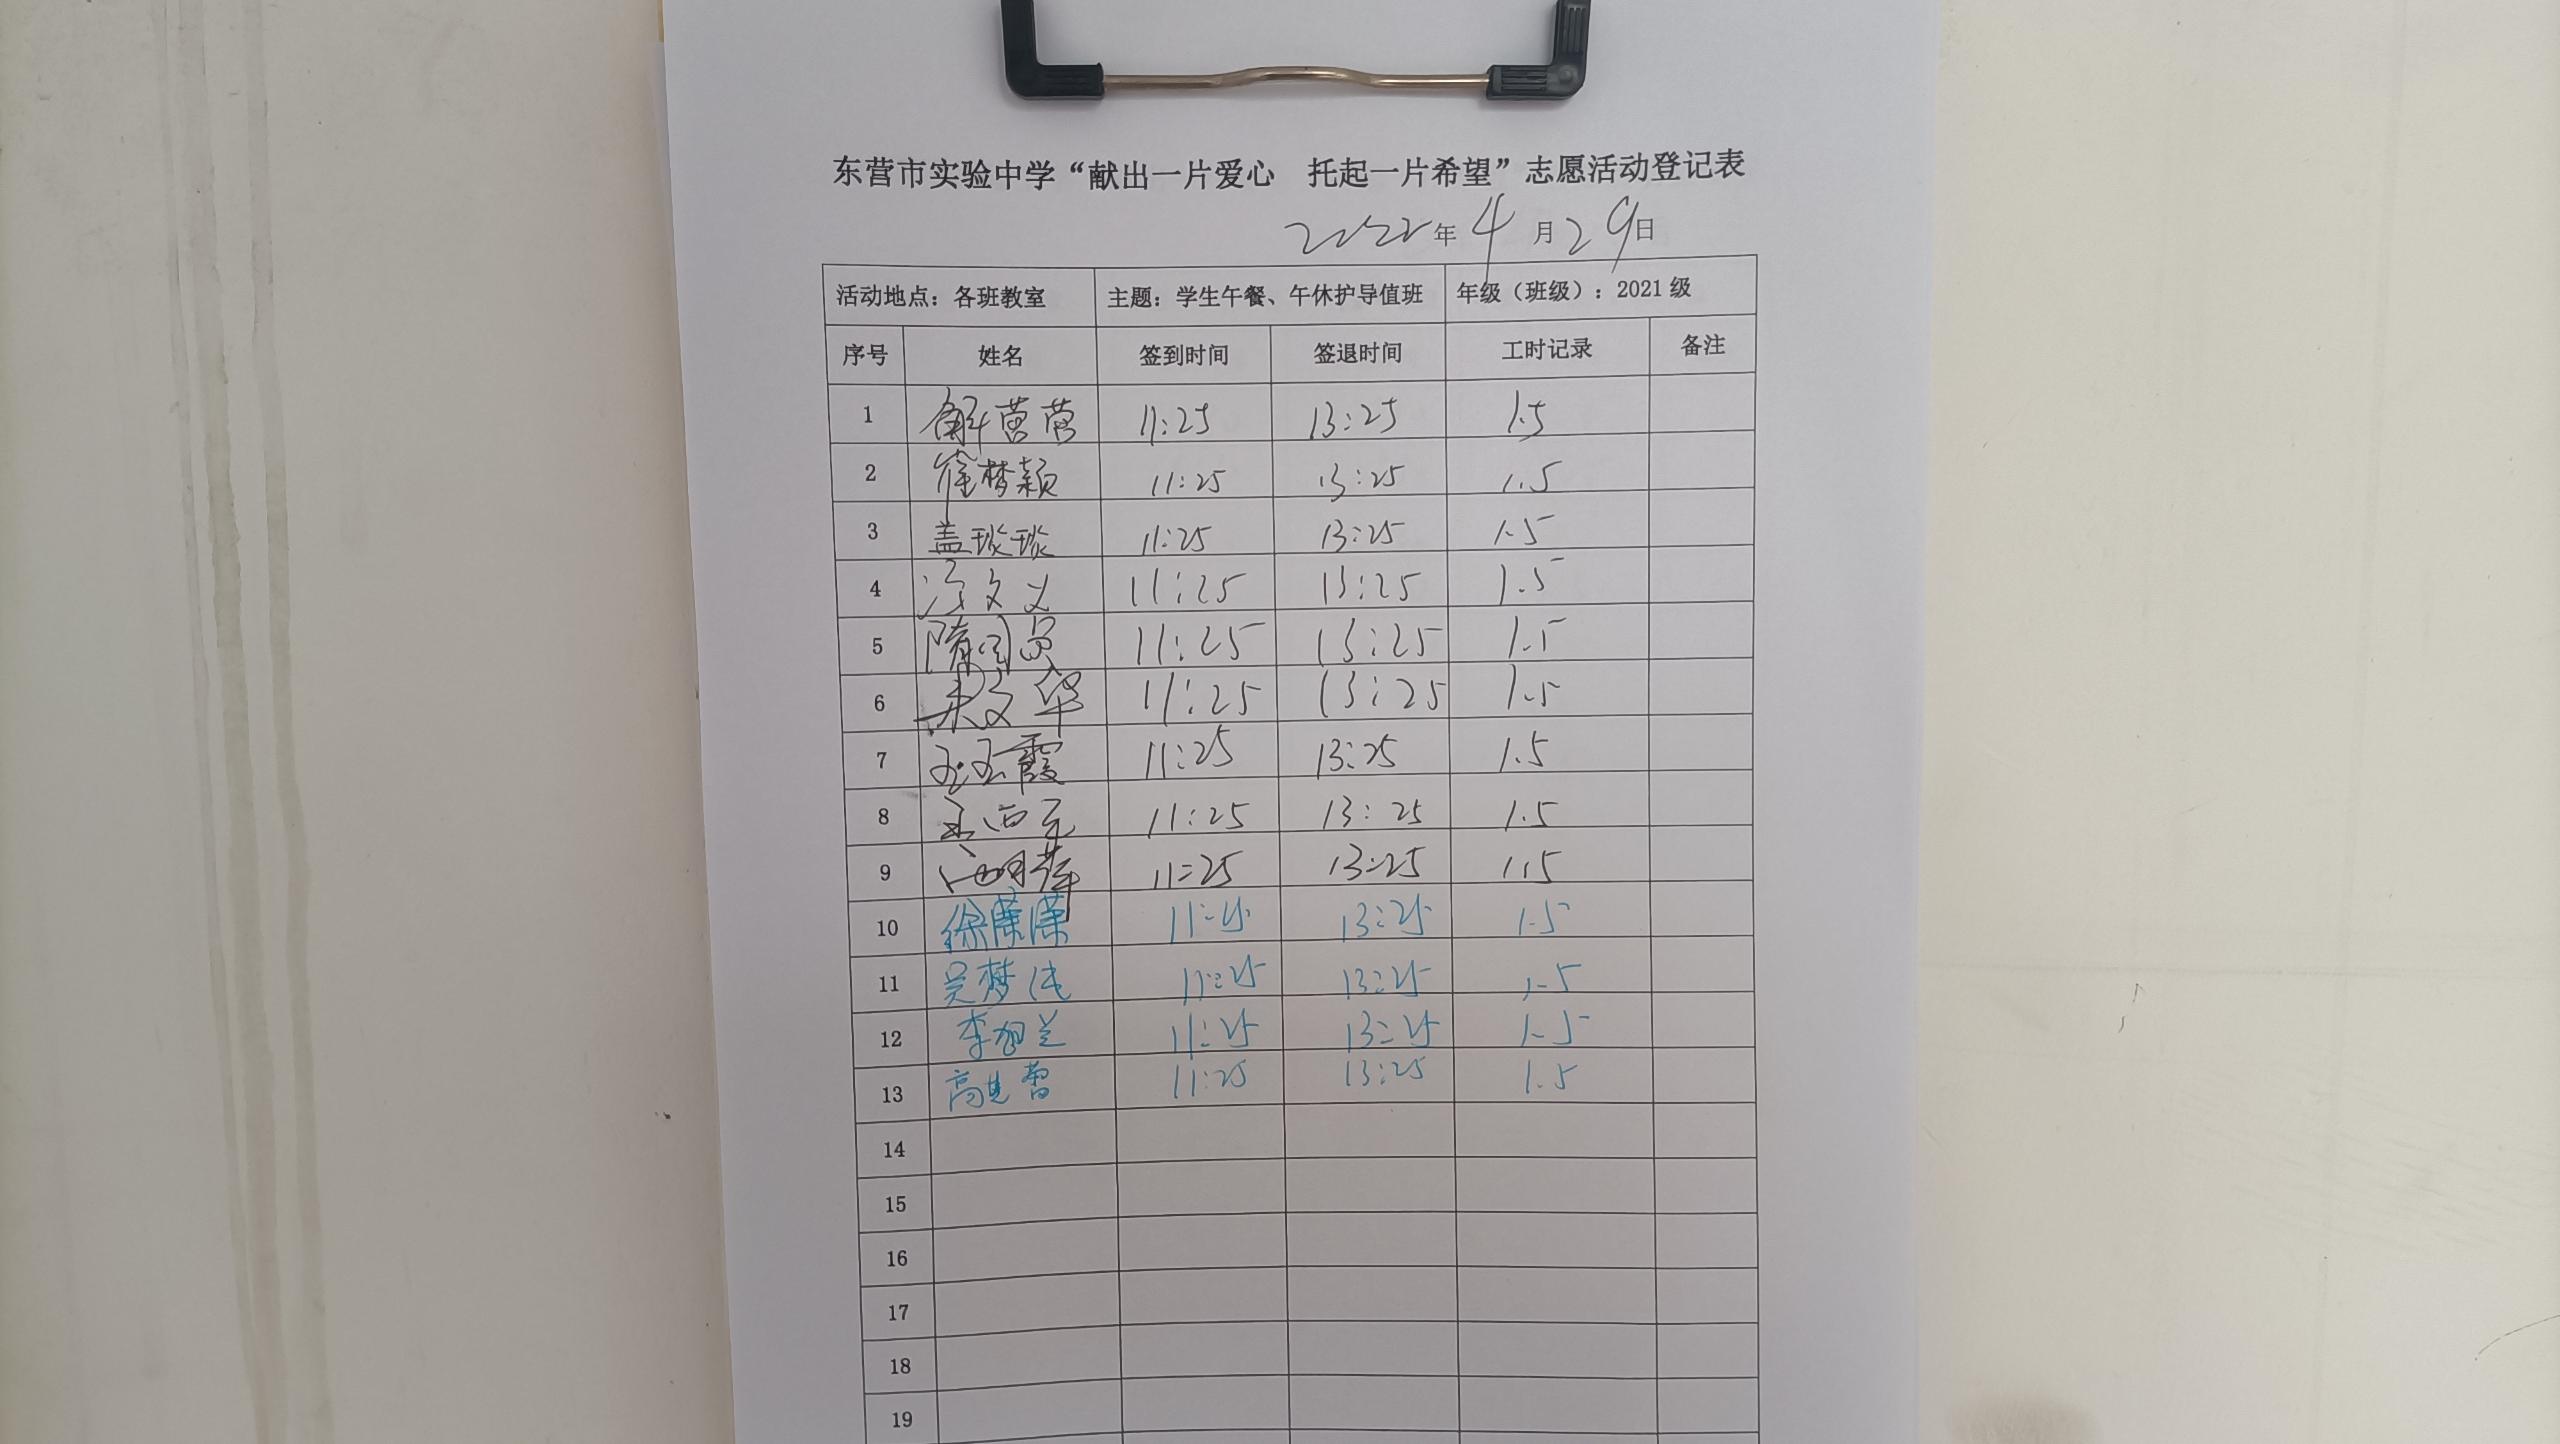 东营市实验中学“献出一片爱心 托起一片希望”志愿活动登记表
2022年4月29日
活动地点：各班教室 主题：学生午餐、午休护导值班 年级（班级）：2021级
序号 姓名 签到时间 签退时间 工时记录 备注
1 解营营 11:25 13:25 1.5
2 崔梦颖 11:25 13:25 1.5
3 盖琰琰 11:25 13:25 1.5
4 11:25 13:25 1.5
5 11:25 13:25 1.5
6 宋文华 11:25 13:25 1.5
7 王玉霞 11:25 13:25 1.5
8 11:25 13:25 1.5
9 11:25 13:25 1.5
10 徐潇潇 11:25 13:25 1.5
11 吴梦佳 11:25 13:25 1.5
12 11:25 13:25 1.5
13 11:25 13:25 1.5
14
15
16
17
18
19